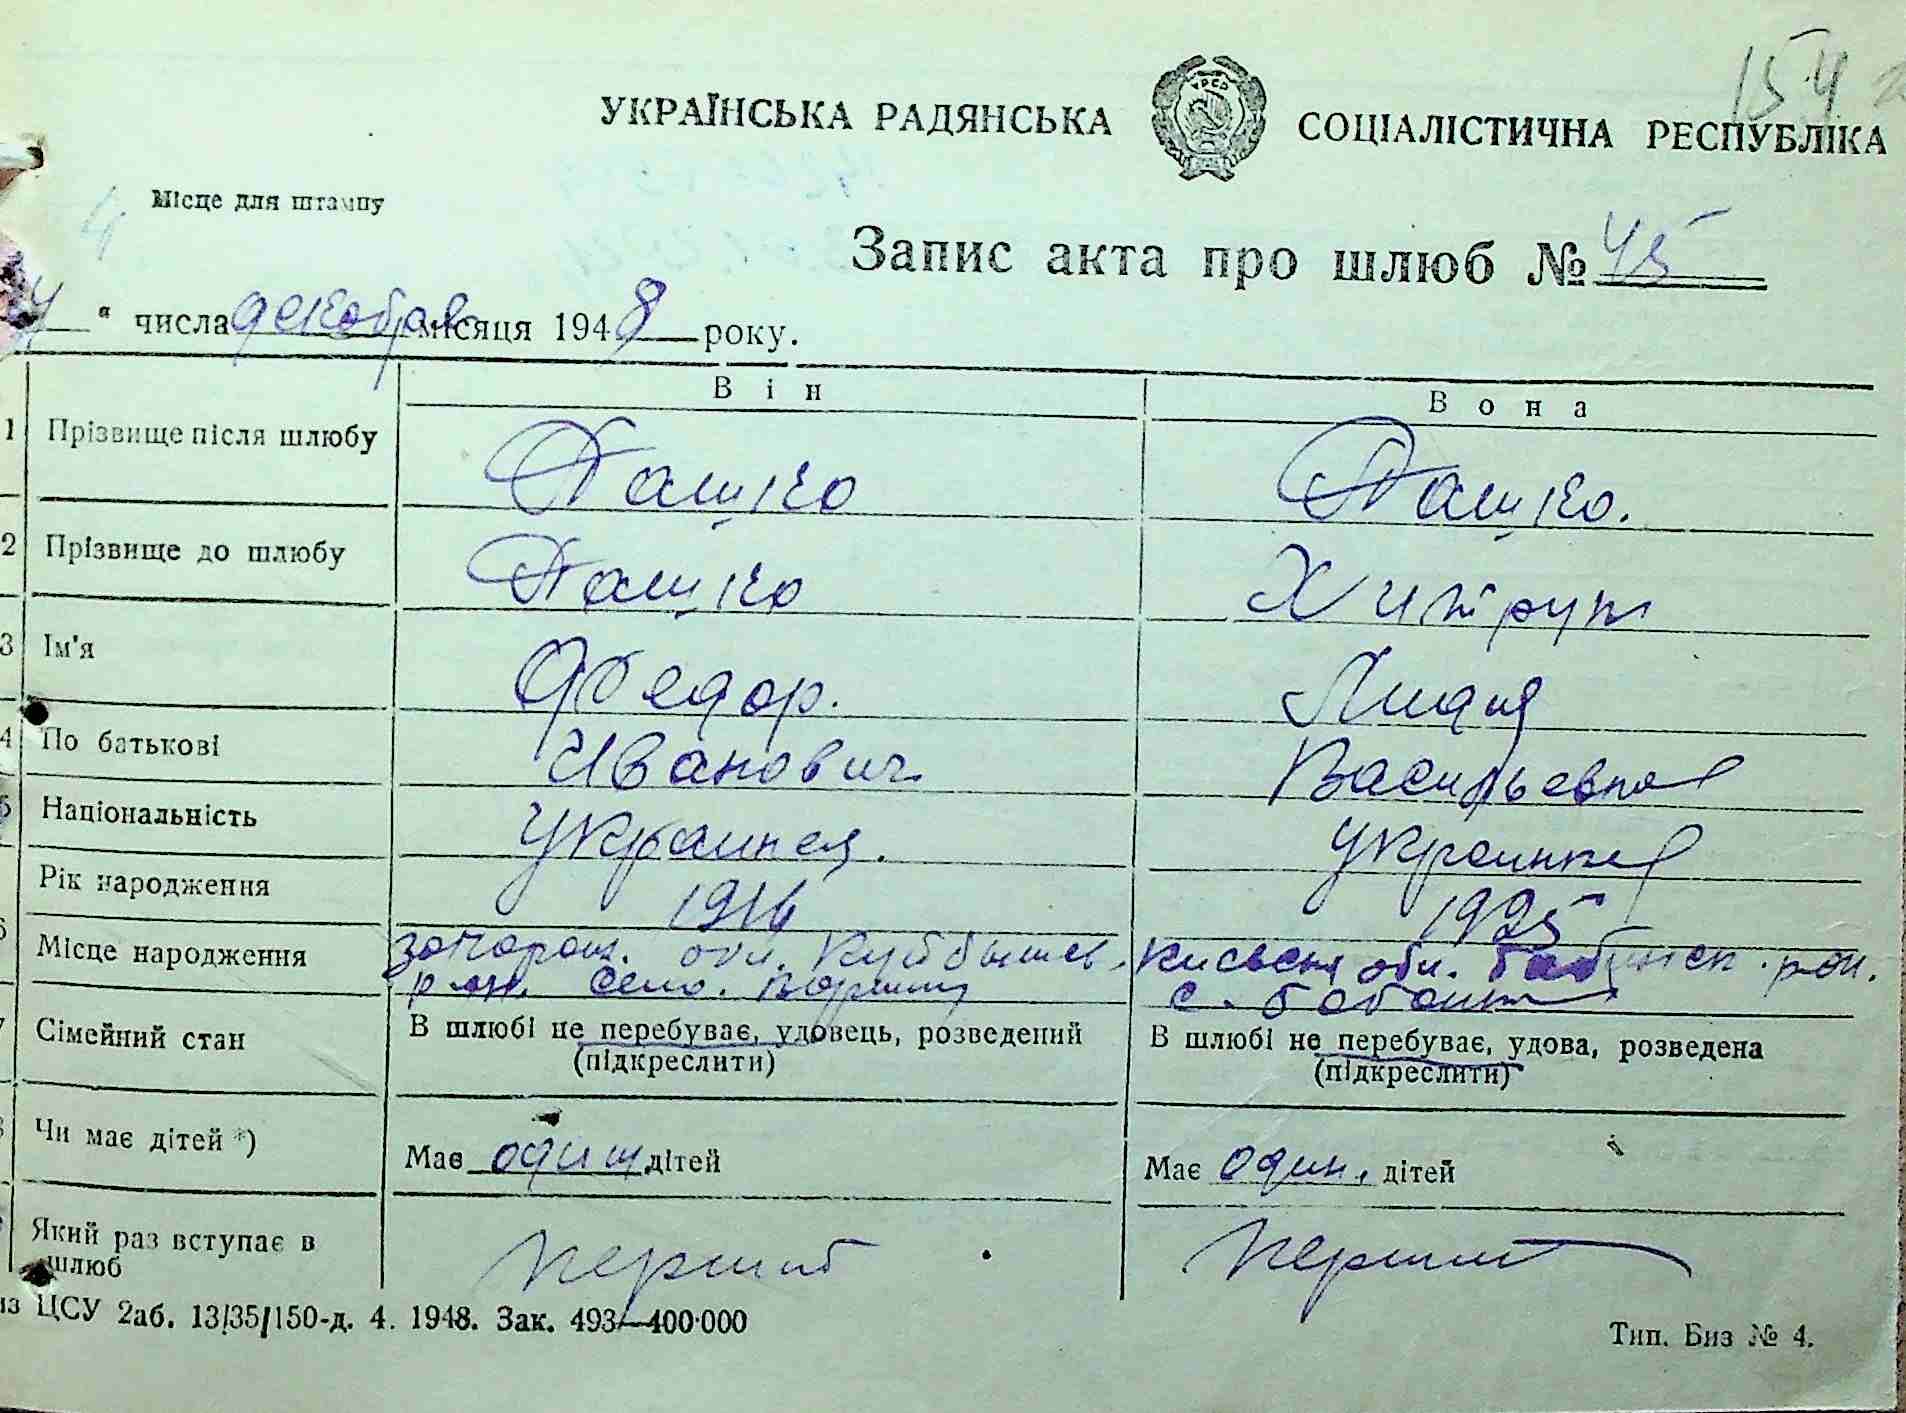 154
УКРАЇНСЬКА РАДЯНСЬКА СОЦІАЛІСТИЧНА РЕСПУБЛІКА
УРСР
Місце для штампу
Запис акта про шлюб № 45
4 " числа декабря місяця 1948 року.
Він Вона
1 Прізвище після шлюбу Пашко Пашко.
2 Прізвище до шлюбу Пашко Хитрук
3 Ім'я Федор. Лидия
4 По батькові Иванович Васильевна
5 Національність Украинец. Украинка
Рік народження 1916 1925
6 Місце народження запорож. обл. Куйбышев. Киевская обл. бабанск. р-он.
р-он. село. с. бабанка
7 Сімейний стан В шлюбі не перебуває, удовець, розведений В шлюбі не перебуває, удова, розведена
(підкреслити) (підкреслити)
8 Чи має дітей *) Має один дітей Має один. дітей
Який раз вступає в шлюб первий первий
ЦСУ 2аб. 13/35/150-д. 4. 1948. Зак. 493—400·000 Тип. Биз № 4.